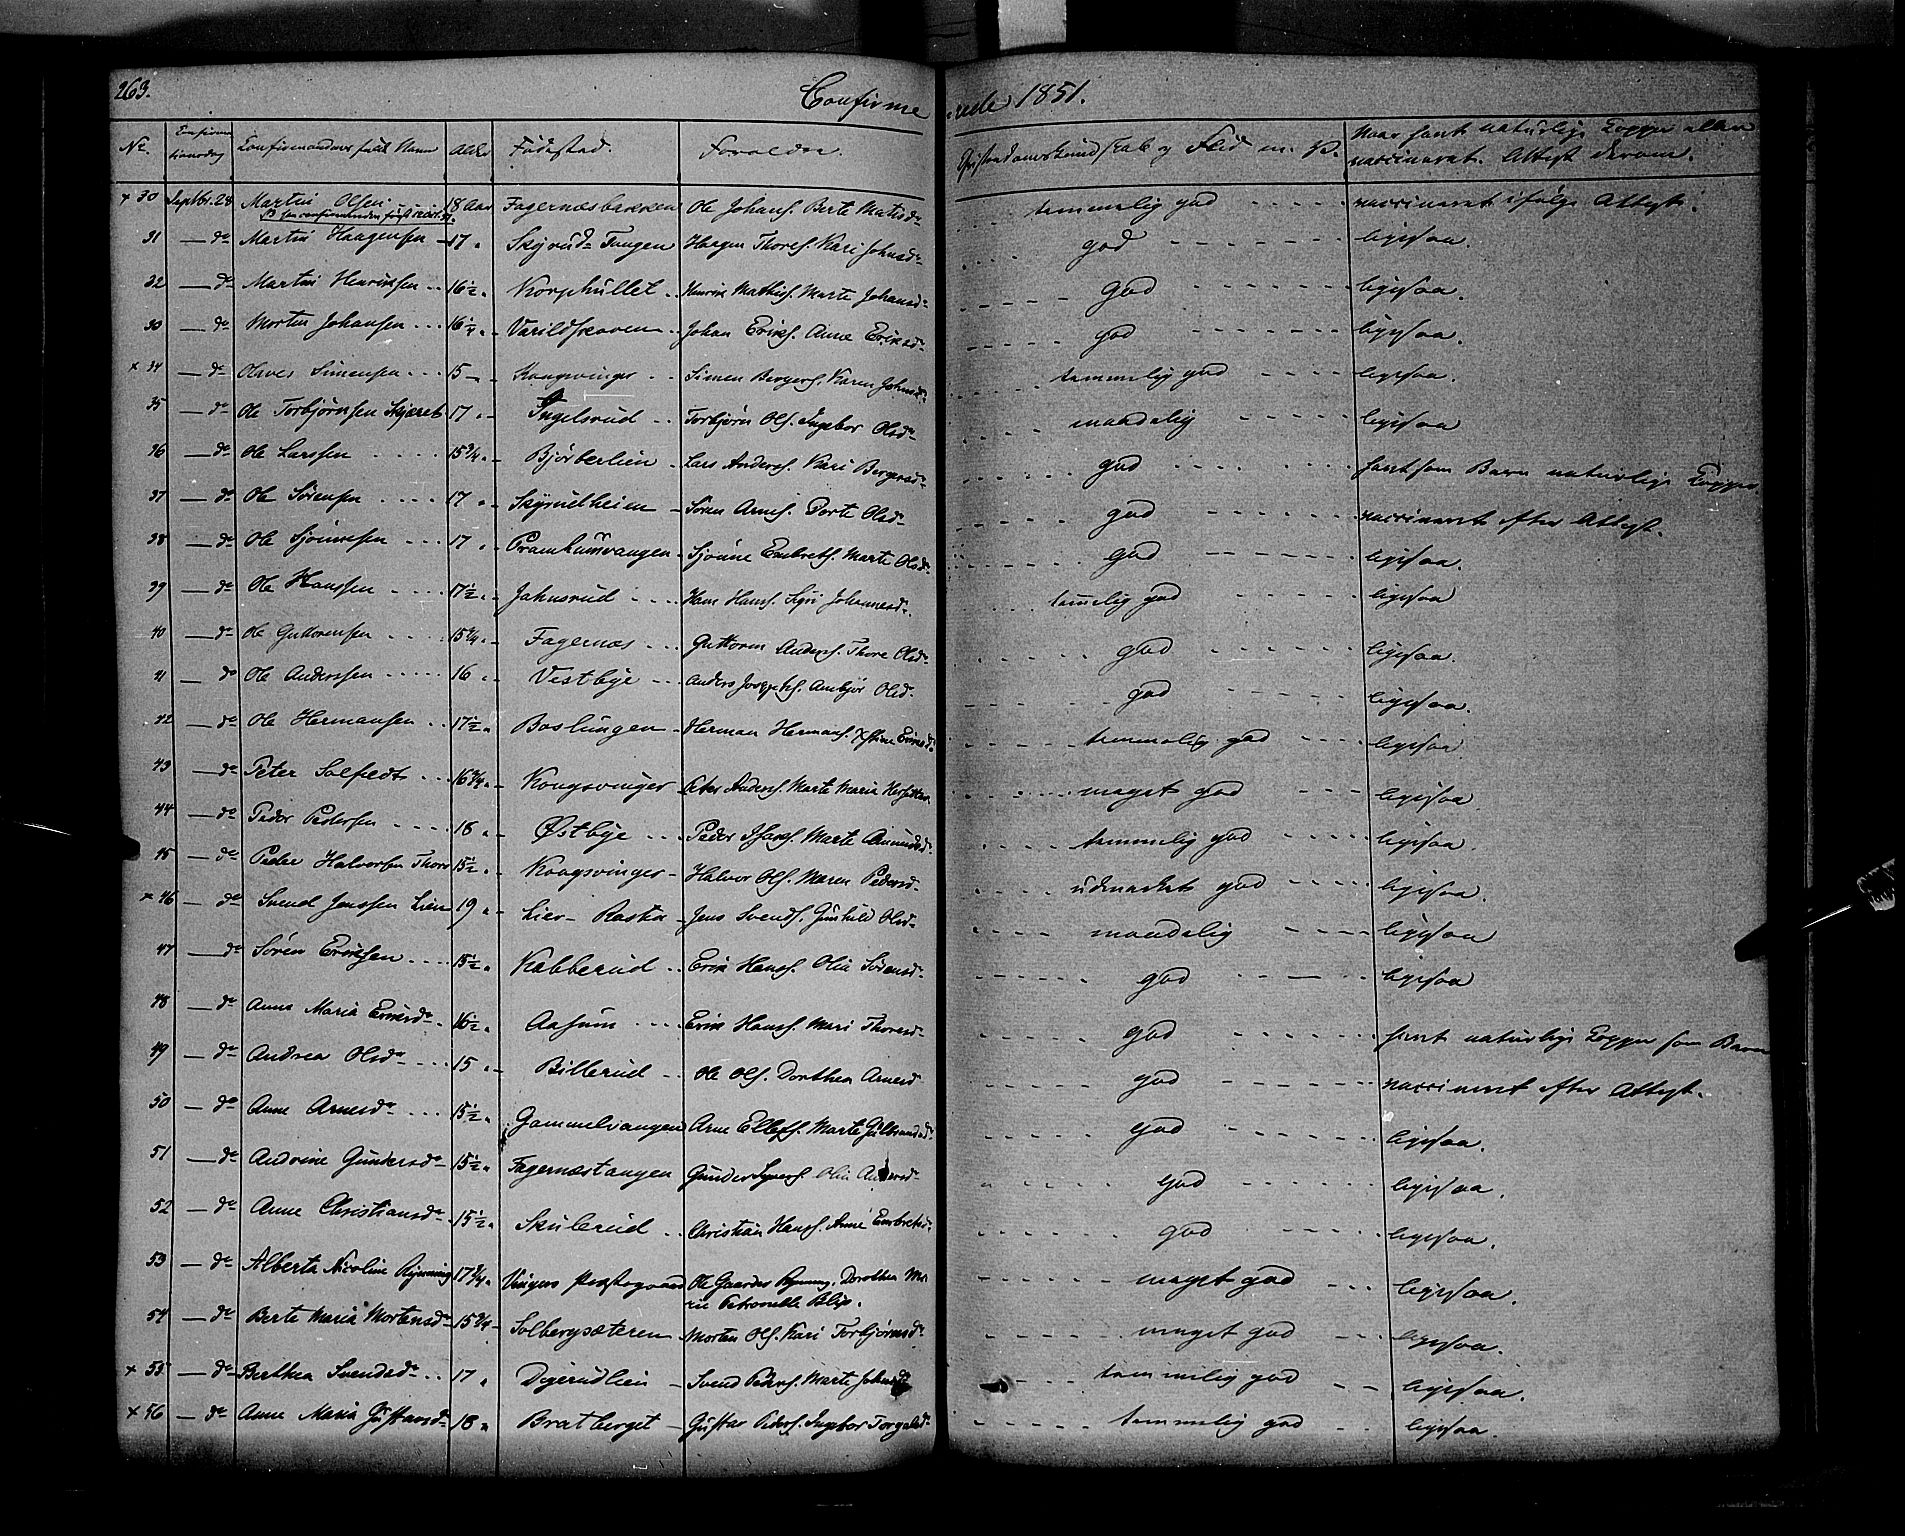 263. Confirmerede 1851.
No. Confirmationsdag Konfirmandens fulde Navn Alder Fødested. Forældre. Christendomskundskab og Flid m. V. Naar havt naturlige Kopper eller vaccineret. Attest derom.
x 30 Septbr. 28 Martin Olsen 18 Aar Fagernæsbakken Ole Johans. Berte Matisdr temmelig god vaccineret ifølge Attest.
31 — do Martin Haagensen 17 " Skyrud Tangen Haagen Thores. Kari Johnsdr god ligesaa.
32 — do Martin Henriksen 16½ " Korphullet Henrik Mathis. Marte Johansdr god ligesaa.
33 — do Morten Johansen 16¼ " Varildskoven Johan Eriks. Anne Eriksdr god ligesaa.
x 34 — do Olaves Simensen 15 — Kongsvinger Simen Bergers. Karen Johnsdr temmelig god ligesaa.
35 — do Ole Torbjørnsen Skjæret 17 " Ingelsrud Torbjørn Ols. Ingebor Olsdr maadelig ligesaa
36 — do Ole Larssen 15¾ " Bjørberlien Lars Anders. Kari Bergersdr god havt som Barn naturlige Kopper.
37 — do Ole Sørensen 17 " Skyrudheim Søren Arnes. Dorte Olsdr god vaccineret efter Attest.
38 — do Ole Sjønnesen 17 " Pramhuusvangen Sjønne Embrets. Marte Olsdr god ligesaa.
39 — do Ole Hanssen 17½ " Jahnsrud Hans Hans. Siri Johannesdr temelig god ligesaa
40 — do Ole Guttormsen 15¾ " Fagernæs Guttorm Anders. Thore Olsdr god ligesaa.
41 — do Ole Anderssen 16 " Vestbye Anders Josephs. Ambjør Olsd. god ligesaa.
42 — do Ole Hermansen 17½ " Baslungen Herman Hermans. Kjstine Eriksd. temmelig god ligesaa
43 — do Peter Solfeldt 16¾ " Kongsvinger Peter Anders. Marte Maria meget god ligesaa.
44 — do Peder Pedersen 16 " Østbye Peder Marte Amundsd. temmelig god ligesaa.
45 — do Peder Halvorsen Thore 15½ " Kongsvinger Halvor Ols. Maren Pedersd. udmærket god ligesaa.
x 46 — do Svend Jenssen Lien 19 " Lier-Rasta Jens Svends. Gunhild Olsdr maadelig ligesaa
47 — do Søren Eriksen 15½ " Kabberud Erik Hans. Olia Sørensdr god ligesaa
48 — do Anne Maria Eriksdr 16½ " Aasum Erik Hans. Mari Thoresdr god havt naturlige Kopper som Barn
49 — do Andrea Olsdr 15 " Billerud Ole Ols. Dorthea Arnesd god vaccineret efter Attest.
50 — do Anne Arnesdr 15½ " Gammelvangen Arne Ellefs. Marte Gulbrandsdr god ligesaa.
51 — do Andrine Gundersdr 15½ " Fagernæstangen Gunder Syvers. Olia Andersdr god ligesaa.
52 — do Anne Christiansdr 15½ " Skulerud Christian Hans. Anne Embretsdr god ligesaa.
53 — do Alberta Nicoline Rynning 17¾ " Vingers Præstegaard Ole Gaarder Rynning, Dorothea Marie Petronelle Blix. meget god ligesaa.
54 — do Berte Maria Mortensdr 15¾ Solbergsæteren Morten Ols. Kari Torbjørnsdr meget god ligesaa.
x 55 — do Berthea Svendsdr 17 " Digerudlien Svend Peders. Marte Johnsdr temmelig god ligesaa.
x 56 — do Anne Maria Gustavsdr 18 " Bratberget Gustav Peders. Ingebor Torgalsdr temmelig god ligesaa.